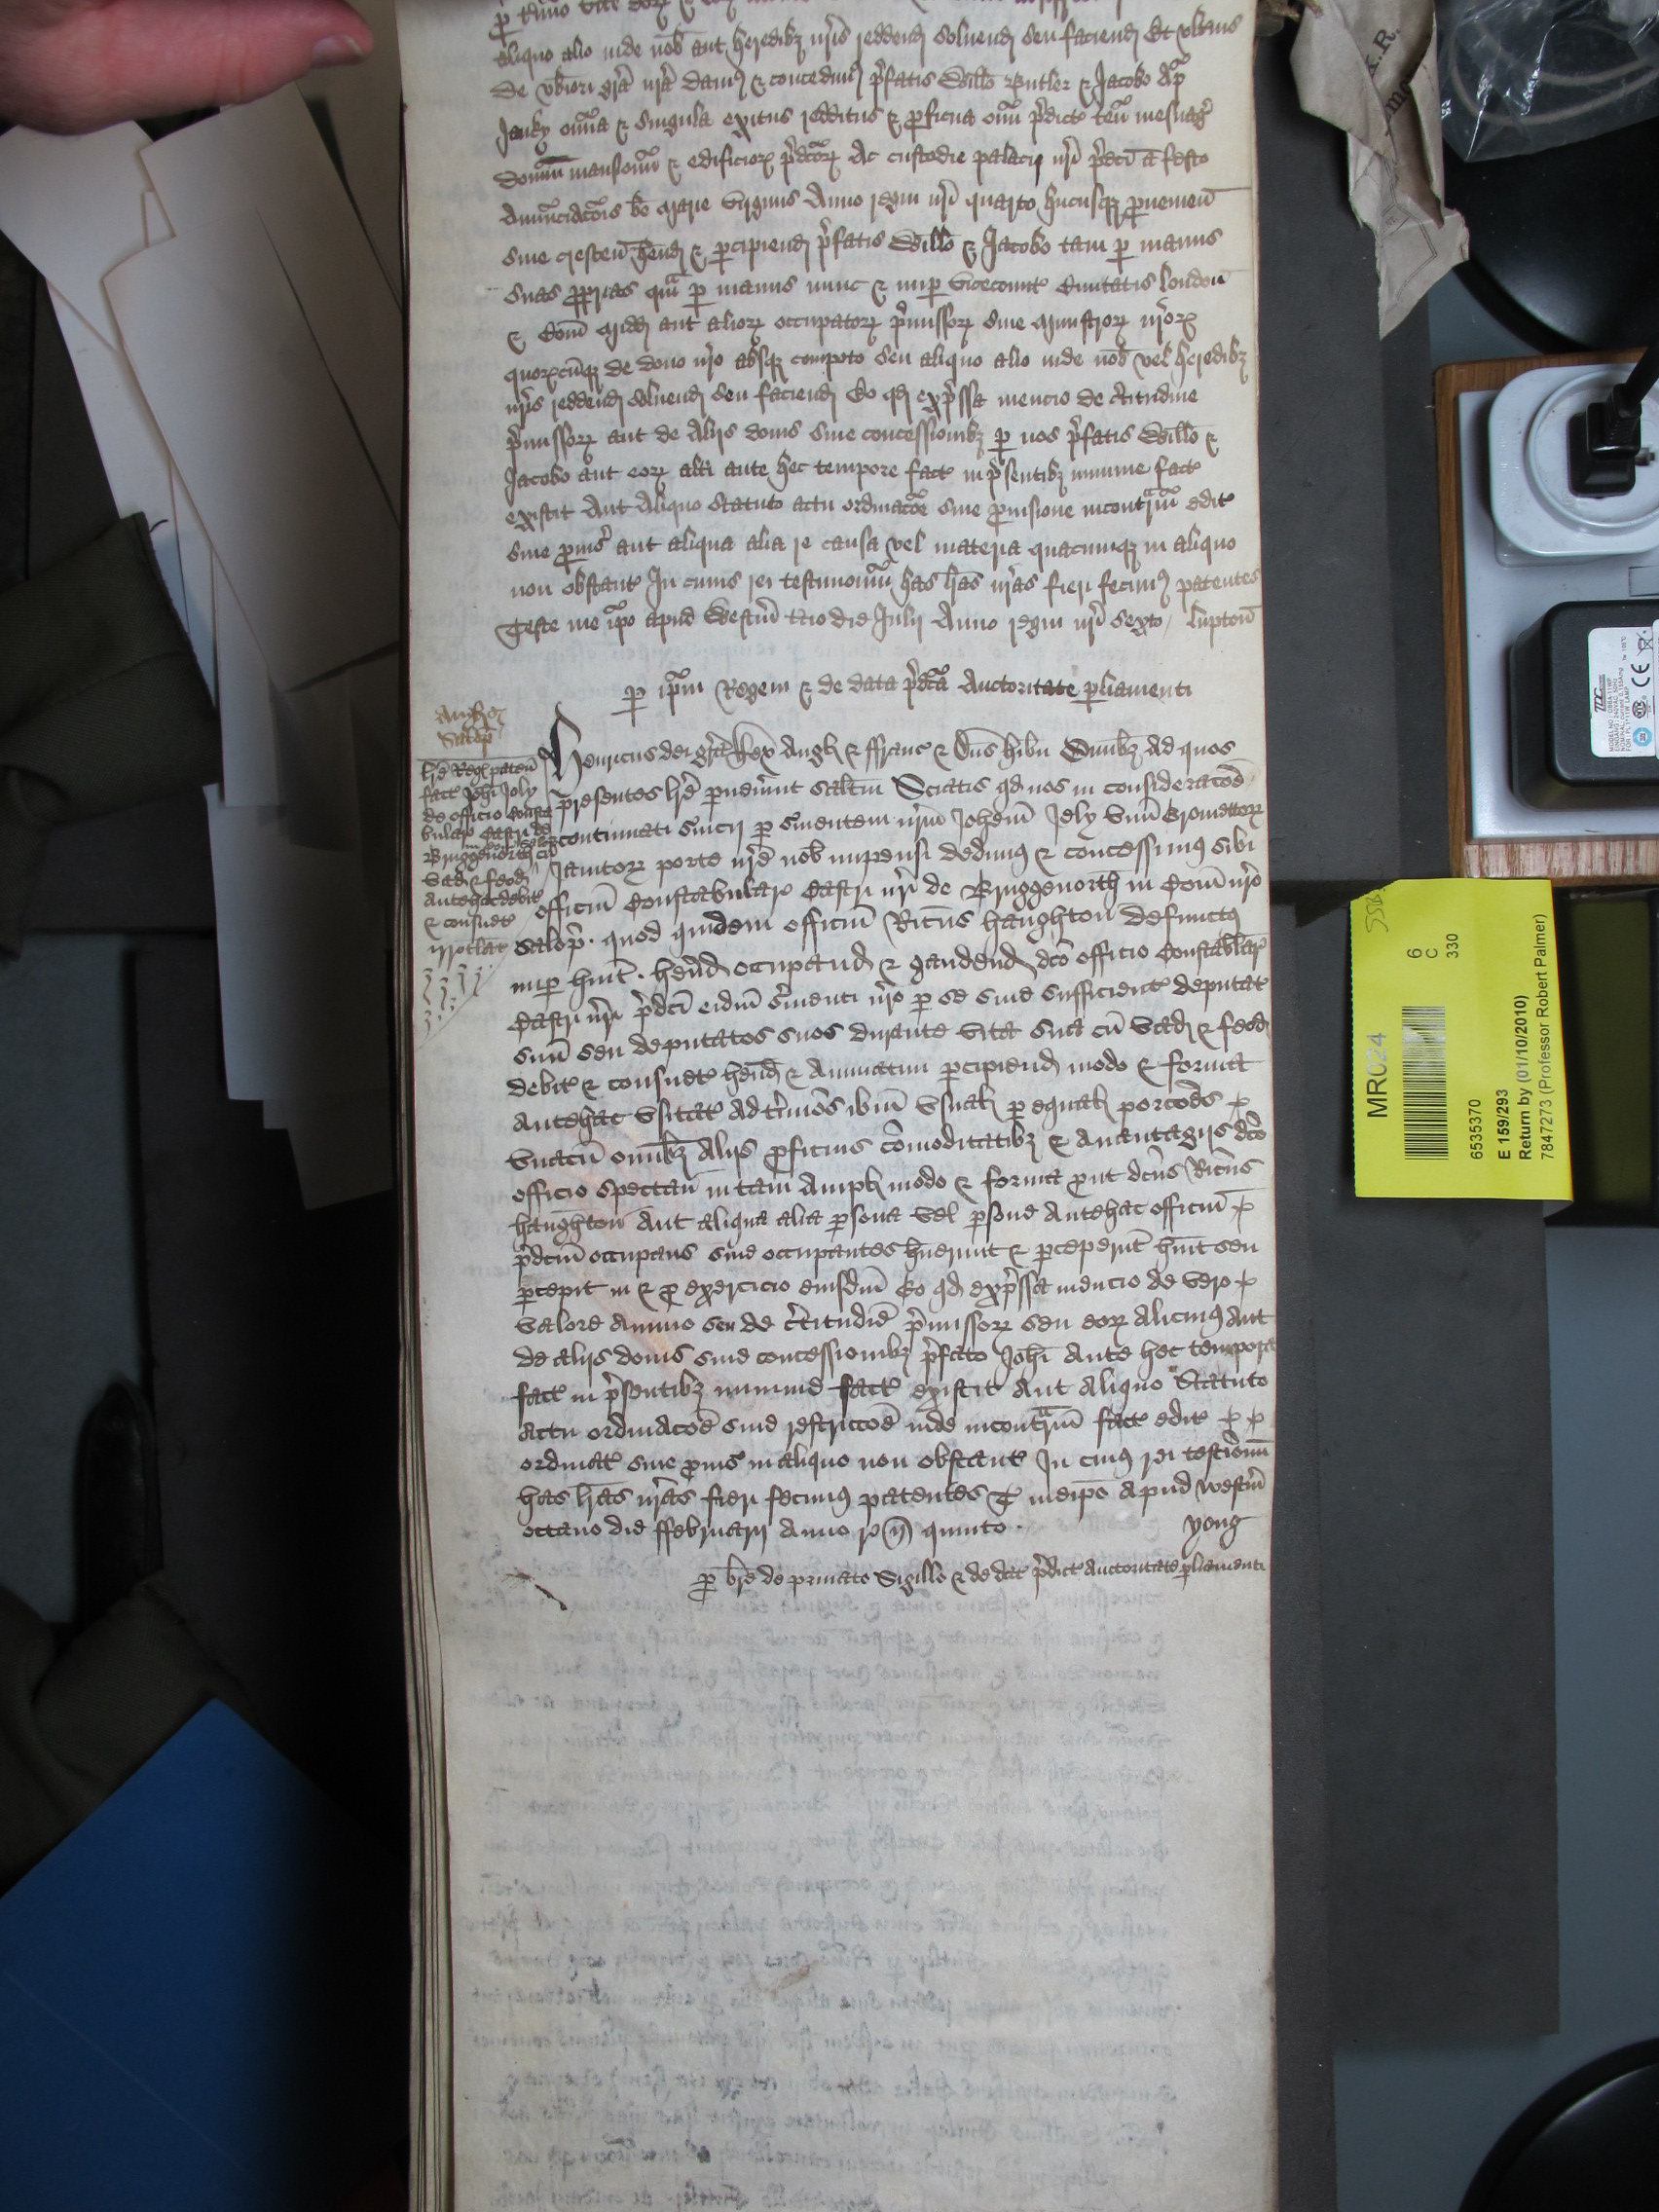 aliquo alio inde nob aut heredibz nris reddend soluend seu faciend Et vlterius
de vberiori gra nra damus & concedimus prefatis Willo Butler & Jacobo Ap
Jenky omia & singula exitus redditus & proficua omi predict ten mesuag
domum mansionum & edificiorum predictorum Ac custodie palacij nri predci a festo
Annunciacois be Marie virginis Anno regni nri quarto hucusqz proueniend
siue crescend hend & percipiend prefatis Willo & Jacobo tam per manus
suas proprias qam per manus nunc & nuper vicecomit Ciuitatis london
& Com Midd aut aliorum occupatorum premissorum siue Ministrorum nrorum
quorumcumqz de dono nro absqz compoto seu aliquo alio inde nob vel heredibz
nris reddend soluend seu faciend Eo qd expressa mencio de certitudine
premissorum aut de Alijs donis siue concessionibz per nos prefatis Willo &
Jacobo aut eorum altri ante hec tempore fact in presentibz minime fact
existit Aut Aliquo Statuto actu ordinacoe siue prouisione incontrarium edit
siue prouis aut aliqua alia re causa vel materia quacumqz in aliquo
non obstant In cuius rei testimonium has lras nras fieri fecimus patentes
Teste me ipo apud Westm tcio die Julij Anno regni nri sexto / lupton
per ipm Regem & de data predca Auctoritate parliamenti
Salop
lre Reg paten
fact Johi Jely
de officio Consta
bular Castri de
Bruggenorth cu
vad & feod
antehac debit
& consuet
irrotlat
Henricus dei gra Rex Angl & ffranc & Dns hibn Omibz Ad quos
presentes lre peruenerint saltm Sciatis qd nos in consideracoe
continuati seruicij per seruientem nrm Johem Jely vnu
Janitorum porte nre nob impensi dedimus & concessimus sibi
officiu Constabular Castri nri de Bruggenorth in Com nro
Salop. quod quidem officiu Ricus haughton defunctus
nuper huit. hend occupand & gaudend dco officio Constablar
Castri nri predci eidm seruienti nro per se siue sufficient deputat
suu seu deputatos suos durante vita sua cu vad & feod
debit & consuet hend & Annuatim percipiend modo & forma
Antehac vsitat Ad terminos ibm vsual per equal porcoes
vnacu omibz Alijs proficuis comoditatibz & Auantagijs dco
officio spectan in tam Ampl modo & forma prout dcus Ricus
haughton Aut aliqua alia persona vel persone Antehac officiu
predcm occupans siue occupantes huerunt & perceperunt huit seu
percepit in & pro exercicio eiusdm Eo qd expressa mencio de vero
valore Annuo seu de certitudie premissorum seu eorum Alicuius Aut
de alijs donis siue concessionibz prefato Johi Ante hec tempora
fact in presentibz minime fact existit Aut Aliquo Statuto
Actu ordinacoe siue restriccoe inde incontrarium fact edit
ordinat siue prouis in aliquo non obstant In cuius rei testimoniu
has lras nras fieri fecimus patentes T meipo Apud westm
octauo die ffebruarij Anno r n quinto. yong
per bre de priuato Sigillo & de dat predict Auctoritate parliamenti
MR024
6
C
330
6535370
E 159/293
Return by (01/10/2010)
7847273 (Professor Robert Palmer)